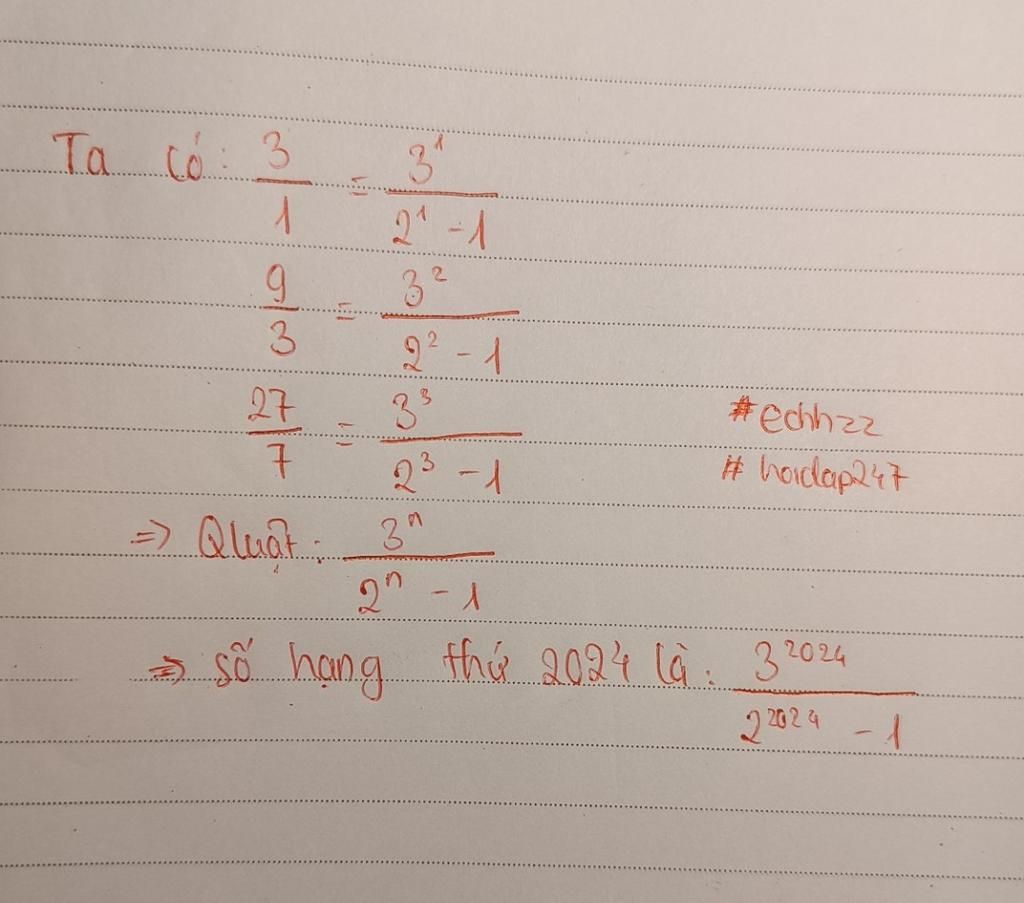 Ta có: 3/1 = 3¹/(2¹ - 1)
9/3 = 3²/(2² - 1)
27/7 = 3³/(2³ - 1)
#echhzz
#hoidap247
=> Qluật: 3ⁿ/(2ⁿ - 1)
=> số hạng thứ 2024 là: 3²⁰²⁴/(2²⁰²⁴ - 1)